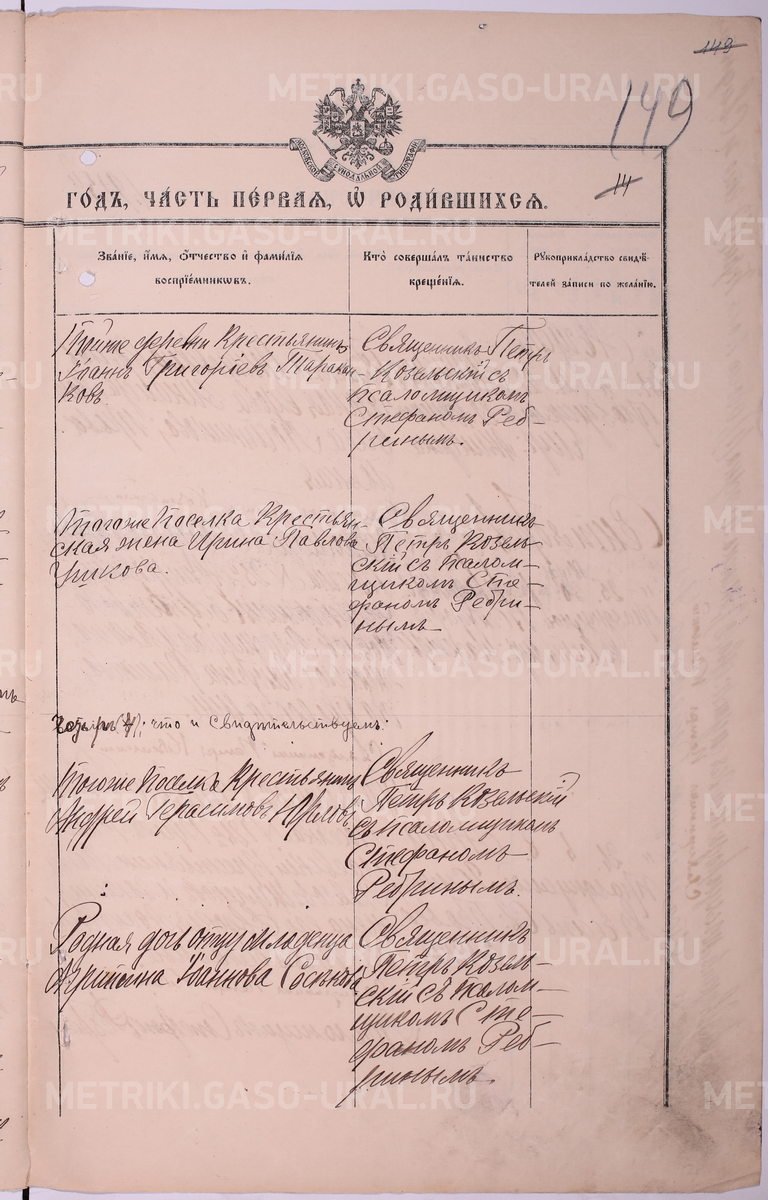 149
149
МОСКОВСКОЙ СѴНОДАЛЬНОЙ ТИПОГРАФІИ
14
ГО́ДЪ, ЧА́СТЬ ПЕ́РВАЯ, Ѡ҆ РОДИ́ВШИХСЯ.
Зва́нїе, и҆́мя, ѻ҆́тчество и҆ фами́лїя
воспрїе́мниковъ.
Кто̀ соверша́лъ та́инство
креще́нїя.
Рꙋкоприкла́дство свидѣ́-
телей за́писи по жела́нїю.
Тойже деревни Крестьянинъ
Іоаннъ Григоріевъ Таракан
ковъ
Священникъ Петръ
Козельскій съ
псаломщикомъ
Стефаномъ Реб-
ринымъ.
Тогоже поселка Крестьян-
ская жена Ирина Павлова
Ушкова.
Священникъ
Петръ Козель
скій съ псалом-
щикомъ Сте-
фаномъ Ребри-
нымъ
(4); что и свидѣтельствуемъ:
Тогоже поселка Крестьянин
Андрей Герасимовъ Юрловъ
Священникъ
Петръ Козельскій
съ псаломщикомъ
Стефаномъ
Ребринымъ.
Родная дочь отцу младенца
Агрипина Іоаннова
Священникъ
Петръ Козель-
скій съ псалом-
щикомъ Сте-
фаномъ Реб-
ринымъ.
METRIKI.GASO-URAL.RU